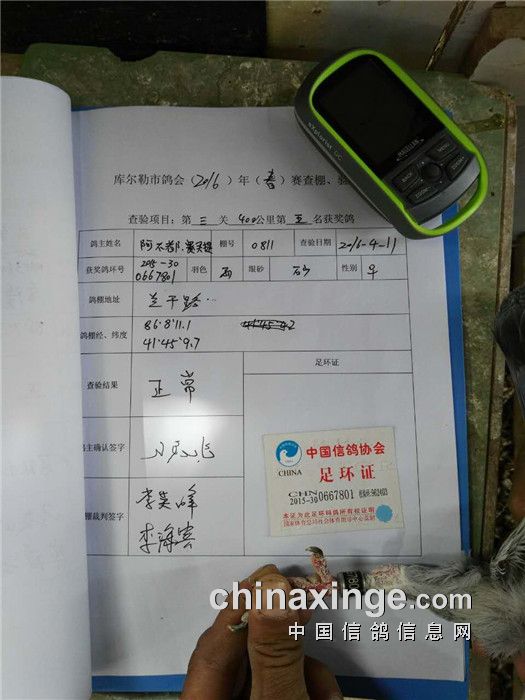 eXplorist GC
MAGELLAN
BACK
MENU
ZOOM-
ZOOM+
库尔勒市鸽会(2016)年(春)赛查棚、验
查验项目:第 三 关 400公里第 五 名获奖鸽
鸽主姓名 棚号 0811 查验日期 2016-4-11
获奖鸽环号 2015-30 0667801 羽色 雨 眼砂 砂 性别 ♀
鸽棚地址 兰干路
鸽棚经、纬度 86°8'11.1
41°45'9.7
足环证
查验结果 正常
主确认签字
棚裁判签字 李笑峰
李海宾
中国信鸽协会
CHINA
足环证
CHN
2015-30 0667801
本证为此足环码鸽所有权证明
国家体育总局社会体育指导中心监制
chinaxinge.com
中国信鸽信息网